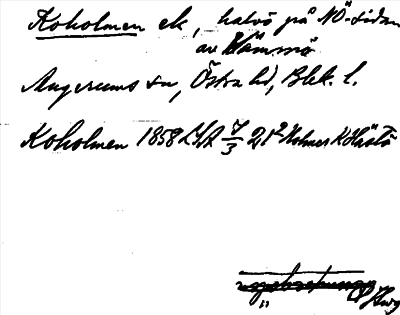 Koholmen ek, halvö på NÖ-sidan
av Hämmö
Augerums sn, Östra hd, Blek. l.
Koholmen 1858 LSA 7/3 21² Holmen K Hästö